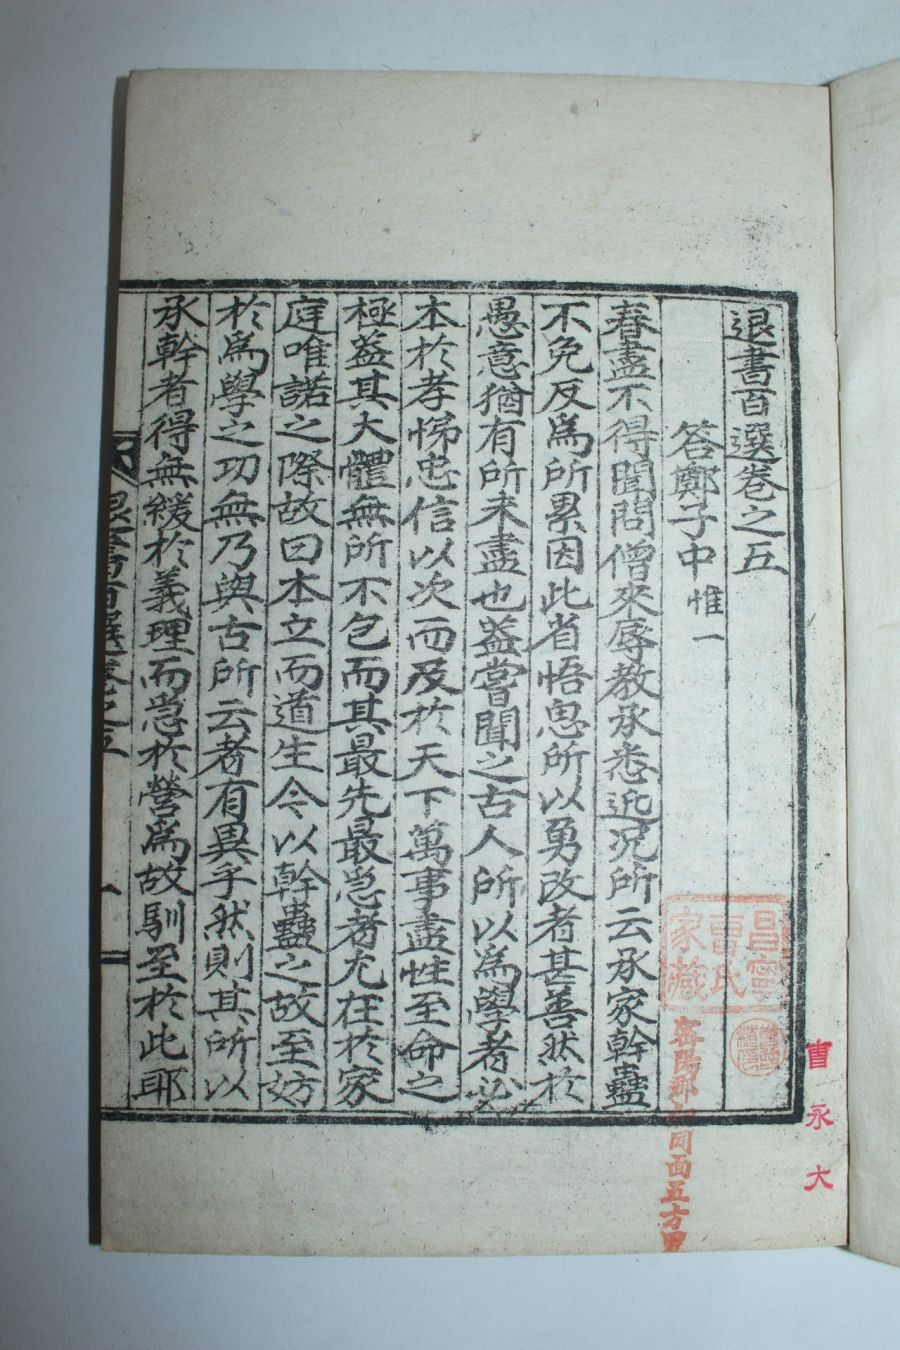 退書百選卷之五
答鄭子中 惟一
春盡不得聞問僧來辱教承悉近況所云承家幹蠱
不免反爲所累因此省悟思所以勇改者甚善然於
愚意猶有所未盡也蓋嘗聞之古人所以爲學者必
本於孝悌忠信以次而及於天下萬事盡性至命之
極蓋其大體無所不包而其最先最急者尤在於家
庭唯諾之際故曰本立而道生今以幹蠱之故至妨
於爲學之功無乃與古所云者有異乎然則其所以
承幹者得無緩於義理而急於營爲故馴至於此耶
退書百選卷之五
昌寧
曺氏
家藏
密陽郡
同面五方里
曺永大